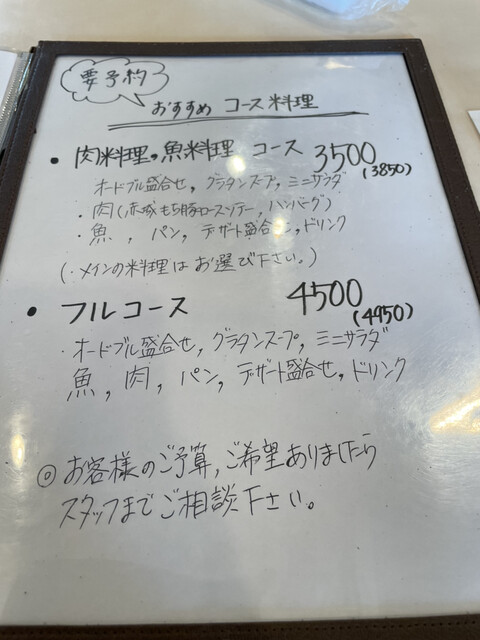 要予約
おすすめ コース料理
• 肉料理,魚料理 コース 3500
(3850)
オードブル盛合せ, グラタンスープ, ミニサラダ
・肉(赤城もち豚ロースソテー, ハンバーグ)
・魚, パン, デザート盛合せ, ドリンク
(・メインの料理はお選び下さい。)
• フルコース 4500
(4950)
・オードブル盛合せ, グラタンスープ, ミニサラダ
魚, 肉, パン, デザート盛合せ, ドリンク
◎ お客様のご予算, ご希望ありましたら
スタッフまでご相談下さい。